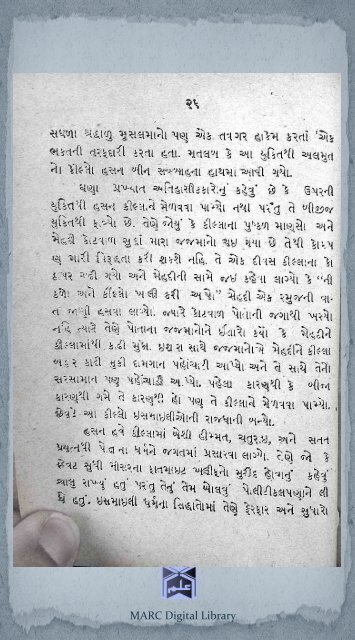 ૨૬
સઘળા શ્રદ્ધાળુ મુસલમાનો પણ એક તવંગર હાકેમ કરતાં 'એક
ભકતની તરફદારી કરતા હતા. મતલબ કે આ યુકિતથી અલમુત
નો કીલ્લો હસન બીન સબ્બાહના હાથમાં આવી ગયો.
ઘણા પ્રખ્યાત ઐતિહાસીકકારોનું કહેવું છે કે ઉપરની
યુકિતથી હસન કીલ્લાને મેળવવા પામ્યો નથી પરંતુ તે બીજી
યુકિતથી તેણે જોયું કે કીલ્લાના પુષ્કળ માણસો અને
મેહદી કોટવાળ સુદ્ધાં મારા જજમાનો થઇ ગયા છે તેથી કોઇ
પણ મારી વિરૂદ્ધતા કરી શકશે નહિ. તે એક દીવસ કીલ્લાના
ઉપર ચઢી ગયો અને મેહદીની સામે જઇ કહેવા લાગ્યો કે "ની
કળો અને કીલ્લો ખાલી કરી આપો" મેહદી એક રમુજની વા-
ત જાણી હસવા લાગ્યો. જ્યારે કોટવાળ પોતાની જગાથી ખસ્યો
નહિ ત્યારે તેણે પોતાના જજમાનોને ઈશારો કર્યો કે મેહદીને
કીલ્લામાંથી કાઢી મુકો. ઇશારા સાથે જજમાનોએ મેહદીને કીલ્લા
બહાર કાઢી મુકી દામગાન પહોંચાડી આપ્યો અને તે સાથે તેનો
સરસામાન પણ પહોંચાડી આપ્યો. પહેલા કારણથી કે બીજા
કારણથી ગમે તે કારણથી હો પણ તે કીલ્લાને મેળવવા પામ્યો.
છેવટે આ કીલ્લો ઇસમાઇલીઓની રાજધાની બન્યો.
હસન હવે કીલ્લામાં બેઠો હીમ્મત, ચતુરાઇ, અને સતત
પ્રયત્નથી પોતાના ધર્મને જગતમાં પ્રસારવા લાગ્યો. તેણે જો કે
છેવટ સુધી મીસરના ફાતમાઇટ ખલીફનો મુરીદ હોવાનું કહેવું
ચાલુ રાખ્યું હતું પરંતુ તેનું તેમ બોલવું પોલીટીકલપણાને લી
ધે હતું. ઇસમાઇલી ધર્મના સિદ્ધાંતોમાં તેણે ફેરફાર અને સુધારો
MARC Digital Library